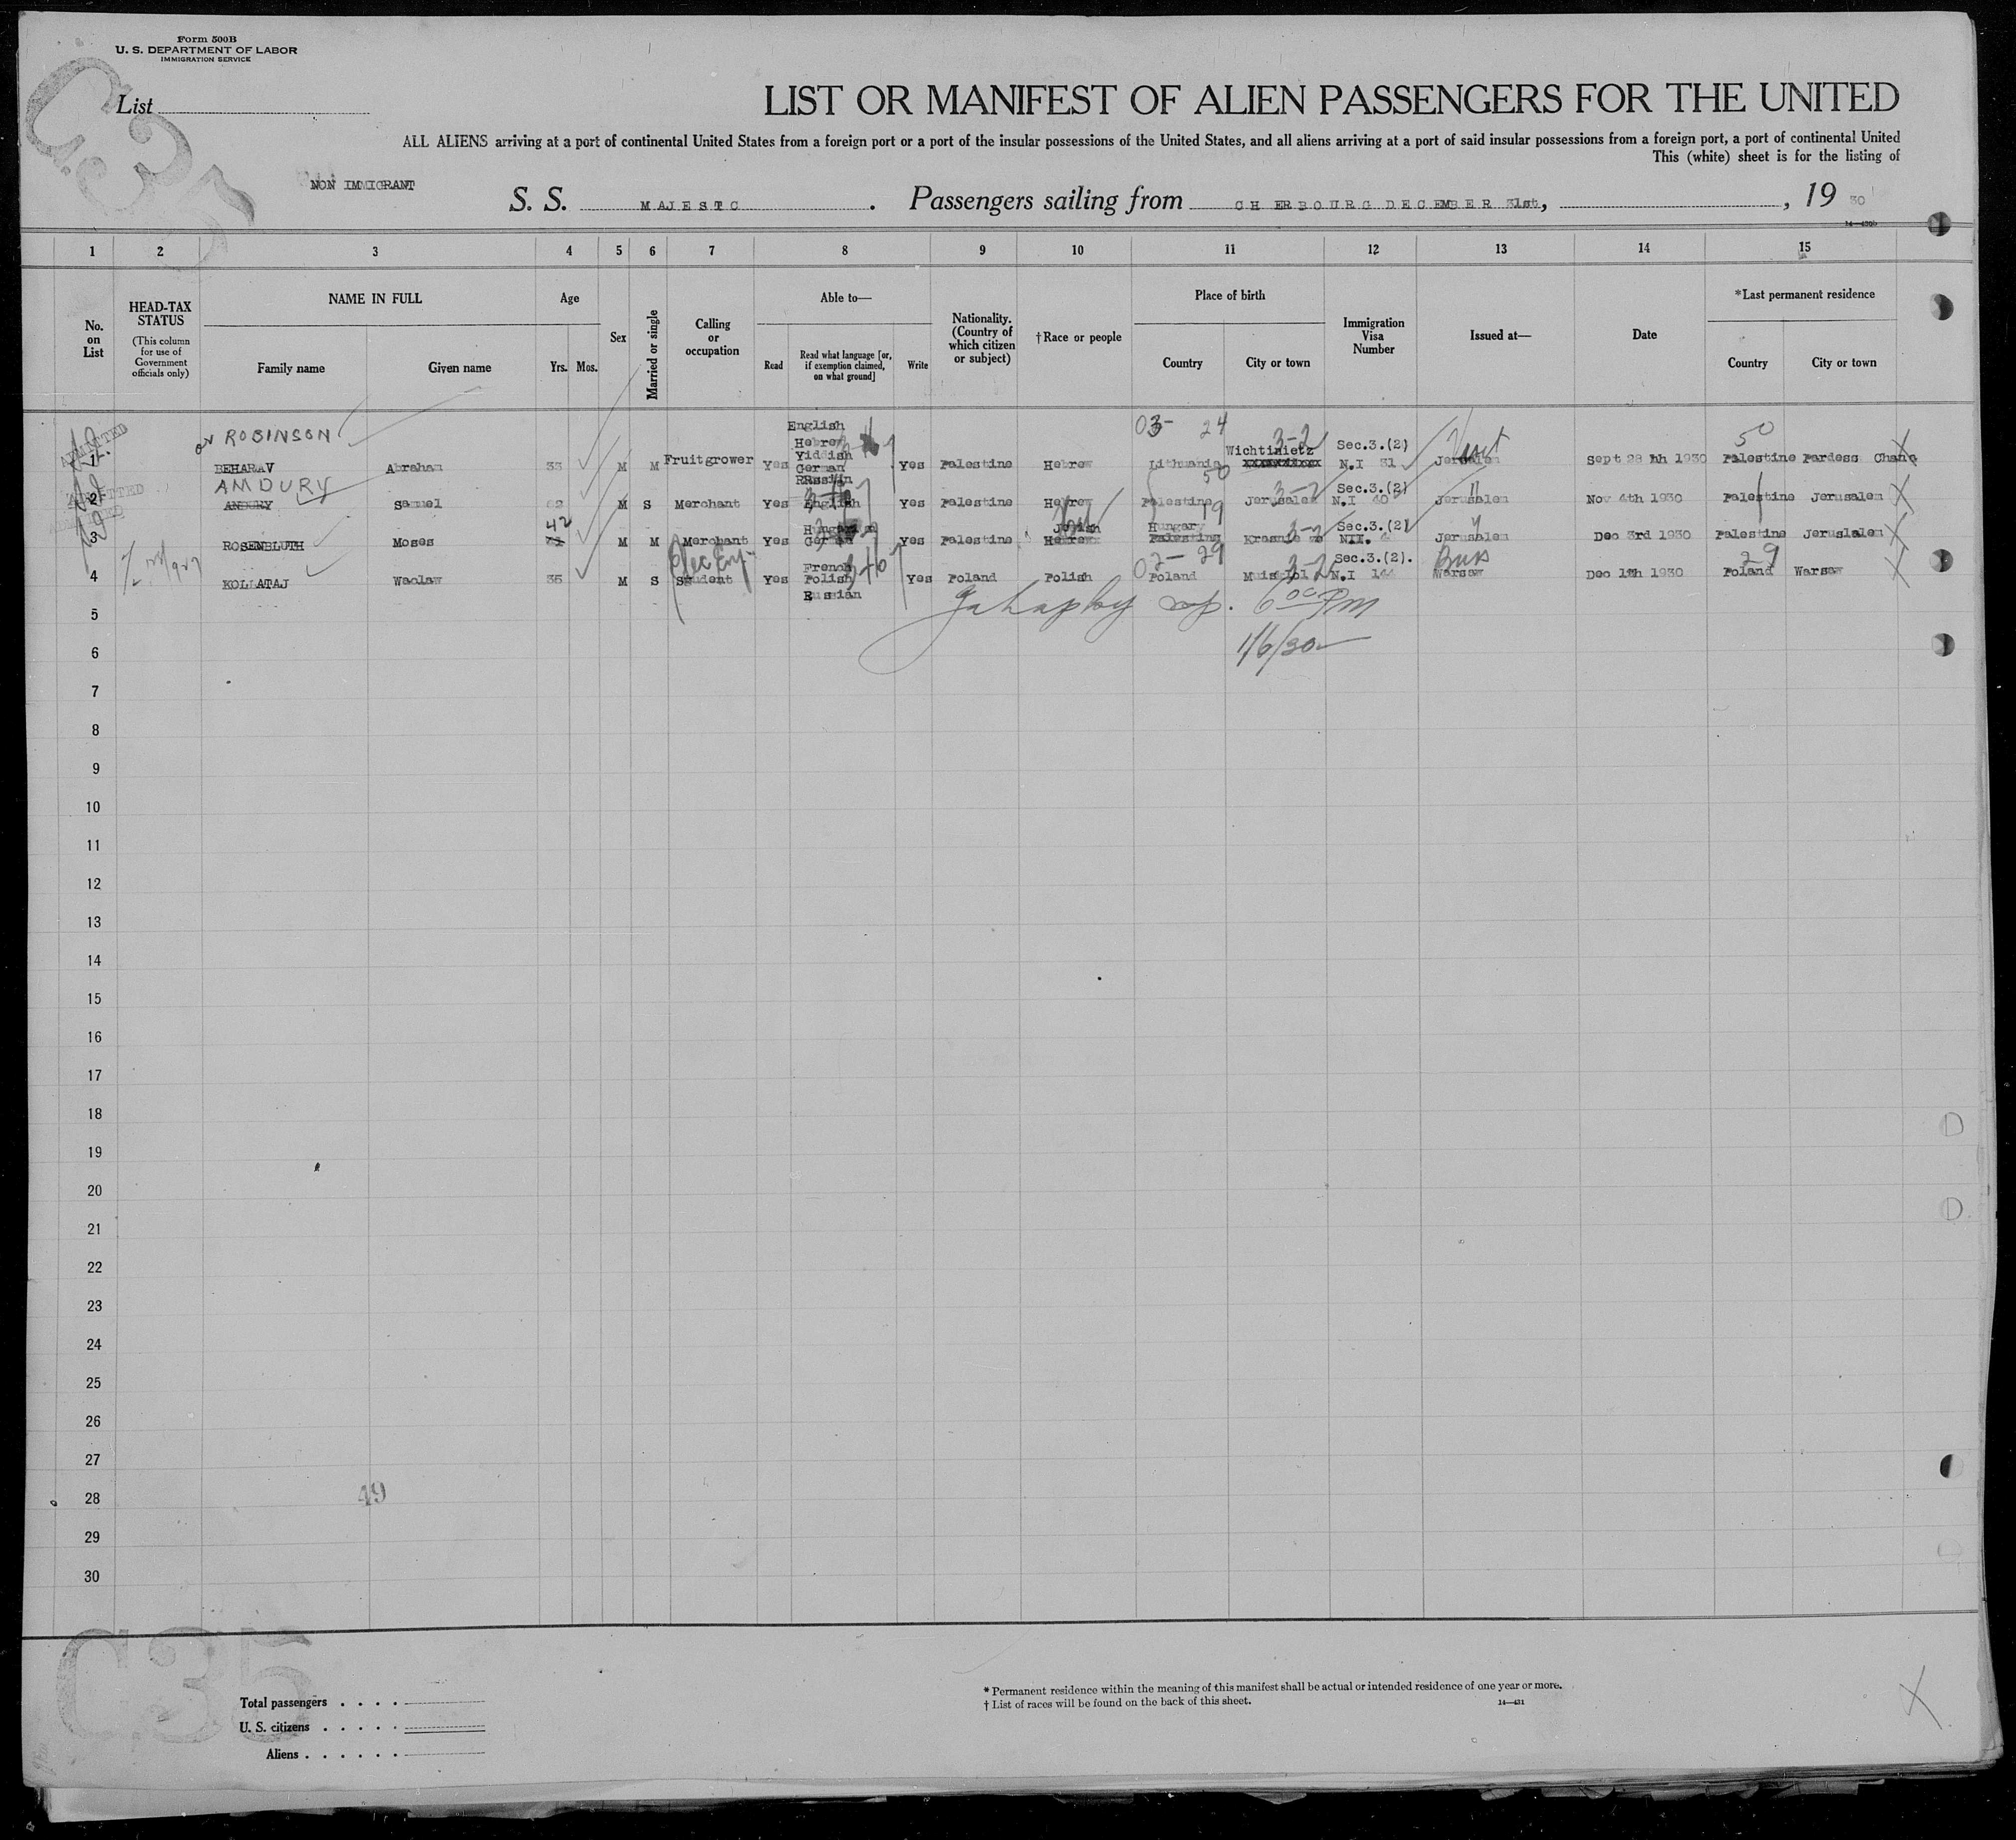 Form 500B
U. S. DEPARTMENT OF LABOR
IMMIGRATION SERVICE
List
LIST OR MANIFEST OF ALIEN PASSENGERS FOR THE UNITED
ALL ALIENS arriving at a port of continental United States from a foreign port or a port of the insular possessions of the United States, and all aliens arriving at a port of said insular possessions from a foreign port, a port of continental United
This (white) sheet is for the listing of
NON IMMIGRANT
S. S. MAJESTC . Passengers sailing from CHERBOURG DECEMBER 31st, , 19 30
14—430b
1 2 3 4 5 6 7 8 9 10 11 12 13 14 15
No. on List
HEAD-TAX STATUS
(This column for use of Government officials only)
NAME IN FULL
Family name Given name
Age
Yrs. Mos.
Sex
Married or single
Calling or occupation
Able to—
Read
Read what language [or, if exemption claimed, on what ground]
Write
Nationality. (Country of which citizen or subject)
†Race or people
Place of birth
Country City or town
Immigration Visa Number
Issued at—
Date
*Last permanent residence
Country City or town
or ROBINSON English 03- 24 50
Hebrew 3-2 Sec.3.(2)
Yiddish Wichtinietz
1 BEHARAV Abraham 33 M M Fruitgrower Yes German Yes Palestine Hebrew Lithuania N.I 31 Jerusalem Sept 28 hh 1930 Palestine Pardess Chana
Russian 50
AMOURY 3-2 Sec.3.(2)
2 Samuel 62 M S Merchant Yes English Yes Palestine Hebrew Palestine Jerusalem N.I 40 Jerusalem Nov 4th 1930 Palestine Jerusalem
42 Hungarian Jewish Hungary 3-2 Sec.3.(2)
3 ROSENBLUTH Moses M M Merchant Yes German Yes Palestine Hebrew Palestine NII. Jerusalem Dec 3rd 1930 Palestine Jeruslalem
Elec Eng. French 02-29 3-2 Sec.3.(2). 29
4 KOLLATAJ Waclaw 35 M S Student Yes Polish Yes Poland Polish Poland N.I 144 Warsaw Dec 1th 1930 Poland Warsaw
Russian
5
6 1/6/30
7
8
9
10
11
12
13
14
15
16
17
18
19
20
21
22
23
24
25
26
27
28 49
29
30
C35
Total passengers . . . .
U. S. citizens . . . . .
Aliens . . . . . .
* Permanent residence within the meaning of this manifest shall be actual or intended residence of one year or more.
† List of races will be found on the back of this sheet. 14—431